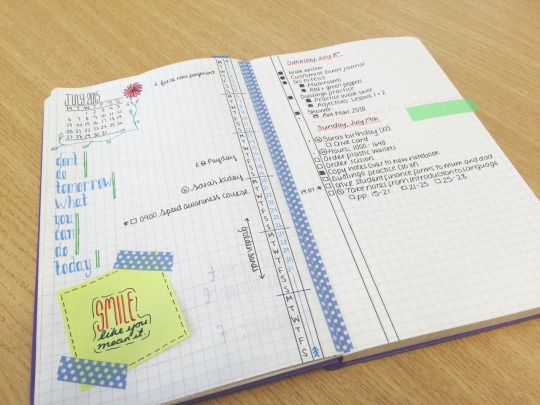 £ first rent payment
JULY 2015
M T W T F S S
1 2 3 4 5
6 7 8 9 10 11 12
13 14 15 16 17 18 19
20 21 22 23 24 25 26
27 28 29 30 31
don't
do
tomorrow
what
you
can
do
today
£ Payday
Sara's
* 0900 Speed awareness course
Golden Sands
SMILE
like you
mean it
Saturday, July 18th
Walk Willow
Customise bullet journal
Go to Tesco
Mushrooms
Red + green peppers
Duolingo practice
Practise weak skill
Adjectives Lessons 1 + 2
Shower
Ant-Man 2030
Sunday, July 19th
Sara's birthday (22)
Give Card
Hours: 1000 - 1640
Order plastic wallets
Order
Copy notes over to new notebook
Duolingo practice (30 XP)
Give student finance forms to mum and dad
19.07
Take notes from Introduction to Language
pp. 15-21 21-25 25-28